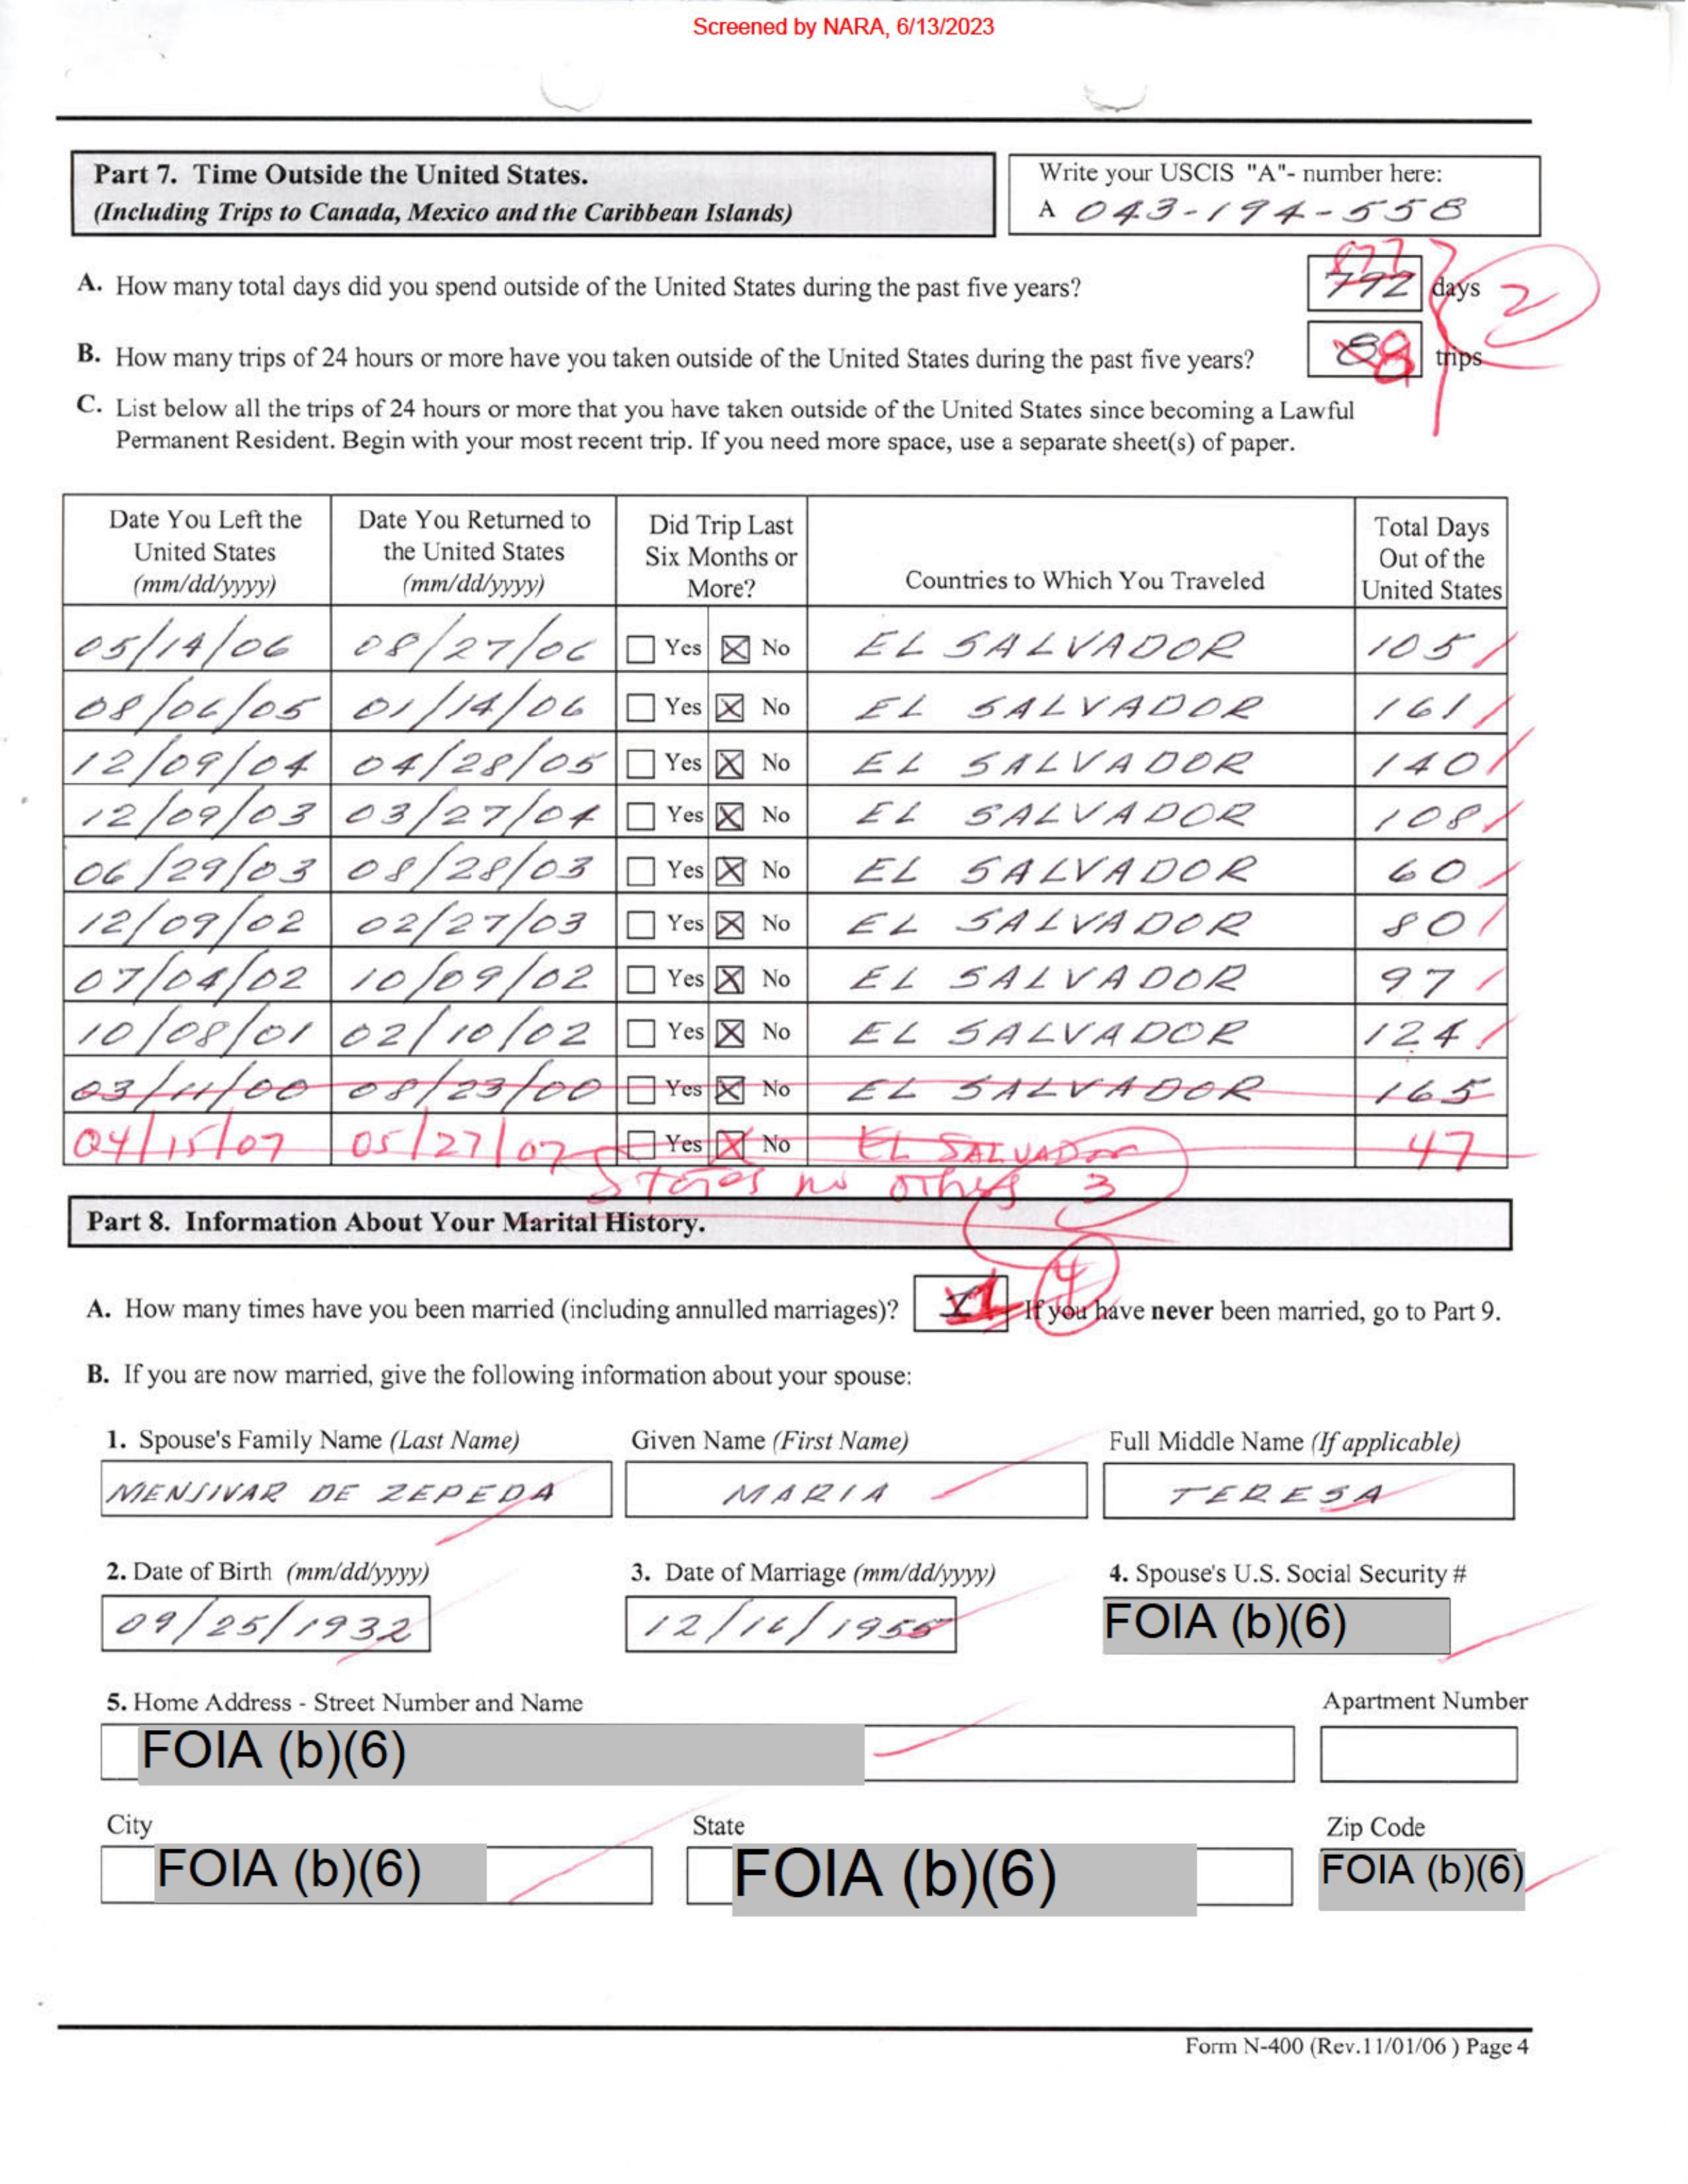 Screened by NARA, 6/13/2023
Part 7. Time Outside the United States.
(Including Trips to Canada, Mexico and the Caribbean Islands)
Write your USCIS "A"- number here:
A 043-194-558
A. How many total days did you spend outside of the United States during the past five years?
877
792 days
2
B. How many trips of 24 hours or more have you taken outside of the United States during the past five years?
trips
C. List below all the trips of 24 hours or more that you have taken outside of the United States since becoming a Lawful
Permanent Resident. Begin with your most recent trip. If you need more space, use a separate sheet(s) of paper.
Date You Left the United States (mm/dd/yyyy) Date You Returned to the United States (mm/dd/yyyy) Did Trip Last Six Months or More? Countries to Which You Traveled Total Days Out of the United States
05/14/06 08/27/06 Yes No EL SALVADOR 105
08/06/05 01/14/06 Yes No EL SALVADOR 161
12/09/04 04/28/05 Yes No EL SALVADOR 140
12/09/03 03/27/04 Yes No EL SALVADOR 108
06/29/03 08/28/03 Yes No EL SALVADOR 60
12/09/02 02/27/03 Yes No EL SALVADOR 80
07/04/02 10/09/02 Yes No EL SALVADOR 97
10/08/01 02/10/02 Yes No EL SALVADOR 124
03/11/00 08/23/00 Yes No EL SALVADOR 165
04/15/07 05/27/07 Yes No EL SALVADOR 47
States no others 3
Part 8. Information About Your Marital History.
4
A. How many times have you been married (including annulled marriages)? 1 If you have never been married, go to Part 9.
B. If you are now married, give the following information about your spouse:
1. Spouse's Family Name (Last Name) Given Name (First Name) Full Middle Name (If applicable)
MENJIVAR DE ZEPEDA MARIA TERESA
2. Date of Birth (mm/dd/yyyy) 3. Date of Marriage (mm/dd/yyyy) 4. Spouse's U.S. Social Security #
09/25/1932 12/16/1955 FOIA (b)(6)
5. Home Address - Street Number and Name Apartment Number
FOIA (b)(6)
City State Zip Code
FOIA (b)(6) FOIA (b)(6) FOIA (b)(6)
Form N-400 (Rev.11/01/06 ) Page 4